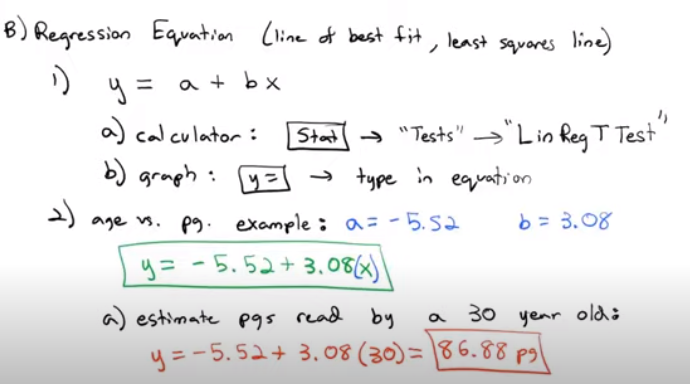 B) Regression Equation (line of best fit, least squares line)
1) y = a + bx
a) calculator: Stat → "Tests" → "LinRegTTest"
b) graph: y= → type in equation
2) age vs. pg. example: a = -5.52 b = 3.08
y = -5.52 + 3.08(x)
a) estimate pgs read by a 30 year old:
y = -5.52 + 3.08(30) = 86.88 pg